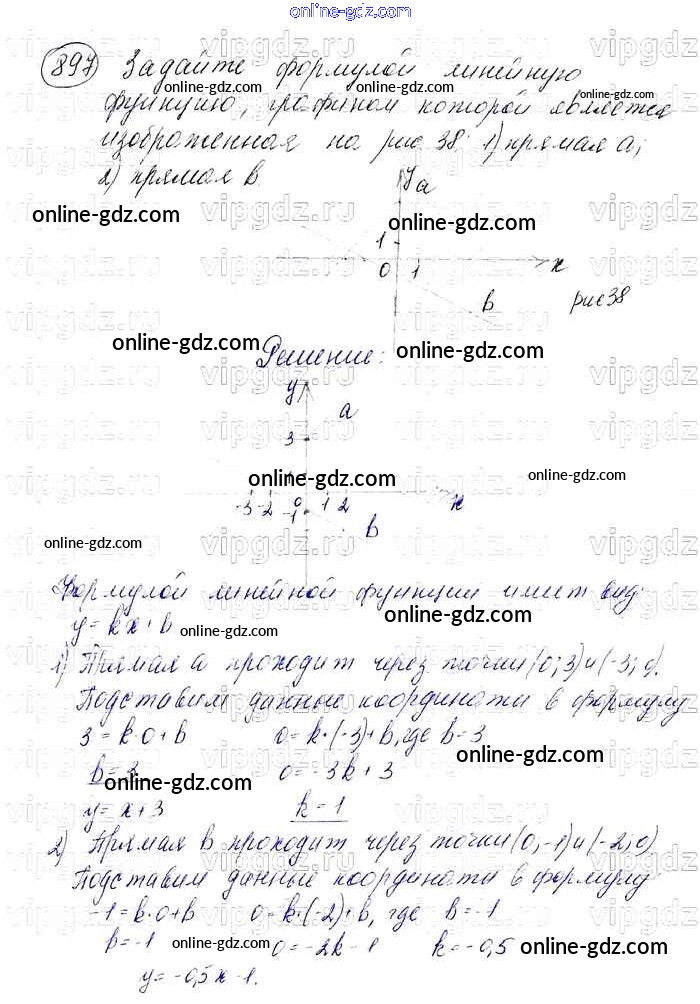 online-gdz.com
897 Задайте формулой линейную
функцию, графиком которой является
изображенная на рис 38: 1) прямая a;
2) прямая b.
y a
online-gdz.com
online-gdz.com
1
0 1 x
b рис 38
online-gdz.com
Решение:
online-gdz.com
y
a
3
online-gdz.com
online-gdz.com
-3 -2 0 1 2 x
-1
b
online-gdz.com
Формулой линейной функции имеет вид:
online-gdz.com
y = kx + b
online-gdz.com
1) Прямая a проходит через точки (0; 3) и (-3; 0).
Подставим данные координаты в формулу
3 = k·0 + b 0 = k·(-3) + b, где b = 3
online-gdz.com
b = 3 0 = -3k + 3
online-gdz.com
y = x + 3 k = 1
online-gdz.com
2) Прямая b проходит через точки (0; -1) и (-2; 0)
Подставим данные координаты в формулу
-1 = k·0 + b 0 = k·(-2) + b, где b = -1
b = -1 online-gdz.com 0 = -2k - 1 k = -0,5 online-gdz.com
y = -0,5x - 1.
online-gdz.com